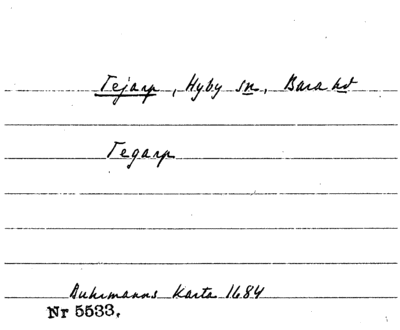 Tejarp, Hyby sn, Bara hd
Tegarp
Buhrmanns Karta 1684
Nr 5533.